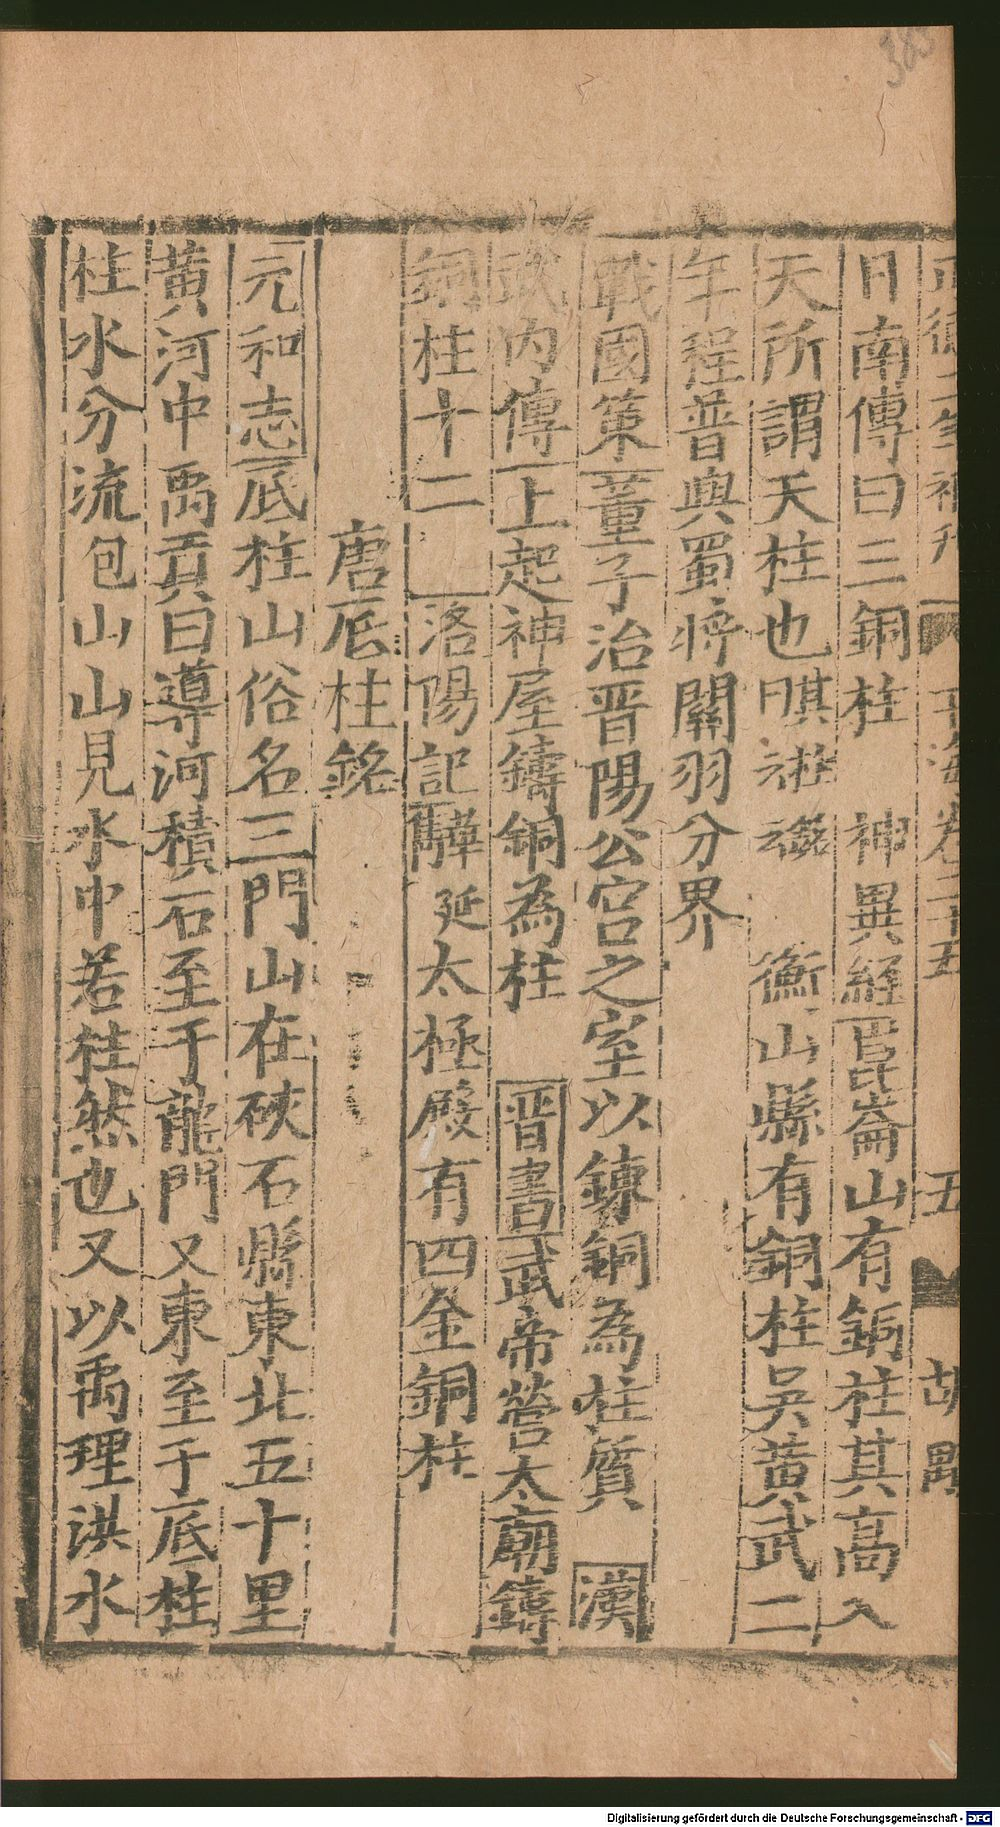 385
正德二年補刊 玉海卷二十五 五 胡
日南傳曰三銅柱 神異經崑崙山有銅柱其高入
天所謂天柱也 衡山縣有銅柱吳黃武二
年程普與蜀將關羽分界
戰國策董子治晋陽公宮之室以鍊銅為柱質 漢
武內傳上起神屋鑄銅為柱 晋書武帝營太廟鑄
銅柱十二 洛陽記驊延太極殿有四金銅柱
唐底柱銘
元和志底柱山俗名三門山在硤石縣東北五十里
黃河中禹貢曰導河積石至于龍門又東至于底柱
柱水分流包山山見水中若柱然也又以禹理洪水
Digitalisierung gefördert durch die Deutsche Forschungsgemeinschaft - DFG